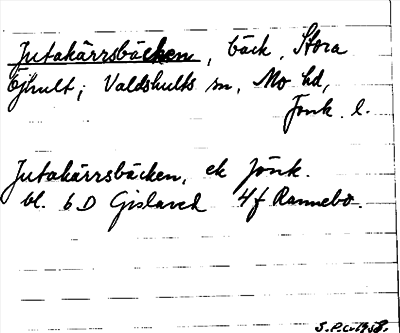 Jutakärrsbäcken, bäck, Stora
Öjhult; Valdshults sn, Mo hd,
Jönk. l.
Jutakärrsbäcken, ek Jönk.
bl. 6D Gislaved 4f Rannebo.
S.P.C. 1958.